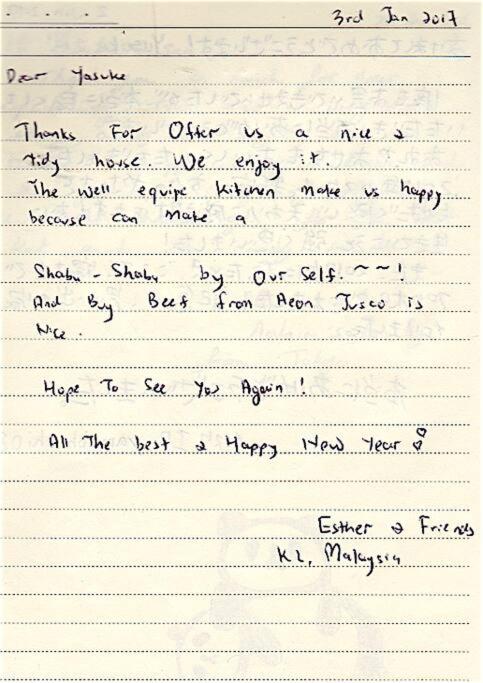 3rd Jan 2017
Dear Yasuke
Thanks For Offer us a nice &
tidy house. We enjoy it.
The well equipe kitchen make us happy
because can make a
Shabu - Shabu by our self. ~~!
And Buy Beef from Aeon Jusco is
Nice.
Hope To See You Again!
All The best & Happy New Year
Esther & Friends
KL, Malaysia